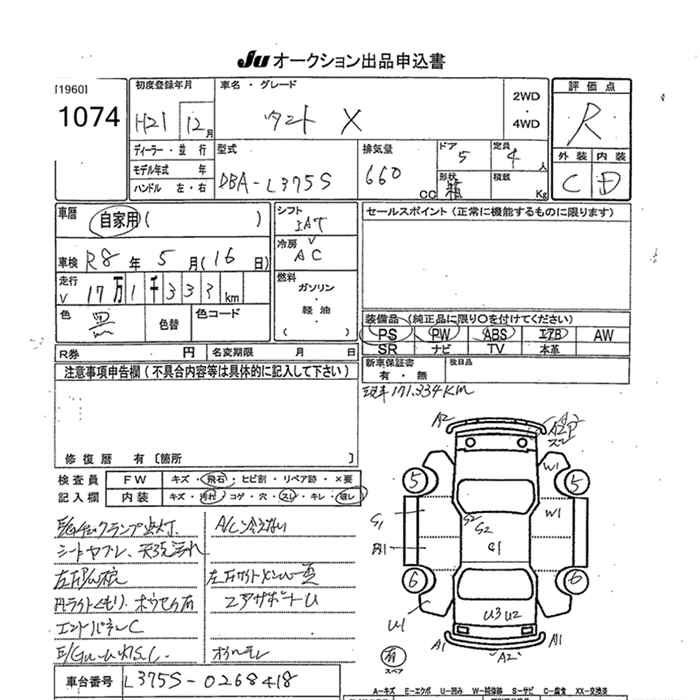 Ju オークション出品申込書
[1960]
1074
初度登録年月
H21 12月
車名・グレード
タント X
2WD
・
4WD
評価点
R
外装 内装
C D
ディーラー・並行
モデル年式 年
ハンドル 左・右
型式
DBA-L375S
排気量
660 CC
ドア
5
定員
4 人
形状
箱
積載
Kg
車歴
自家用 ( )
シフト
IAT
セールスポイント (正常に機能するものに限ります)
車検 R8 年 5 月 (16 日)
冷房
AC
走行
17万1千333km
燃料
ガソリン
・
軽油
( )
色 黒
色替
色コード
装備品 (純正品に限り○を付けてください)
PS PW ABS エアB AW
SR ナビ TV 本革
R券 円
名変期限 月 日
新車保証書
有・無
後日品
注意事項申告欄 (不具合内容等は具体的に記入して下さい)
現車171.334KM
修復歴 有〔箇所 〕
検査員
記入欄
FW キズ・飛石・ヒビ割・リペア跡・×要
内装 キズ・汚れ・コゲ・穴・スレ・キレ・破レ
A/C冷えない
シートヤブレ、天張汚れ
エンドパネルC
車台番号 L375S-0268418
A2
W1
5
5
S1
W1
S2
S2
C1
6
6
U1
U3 U2
A1
A2
A1
有
スペア
A-キズ E-エクボ U-凹み W-補修跡 S-サビ C-腐食 XX-交換済